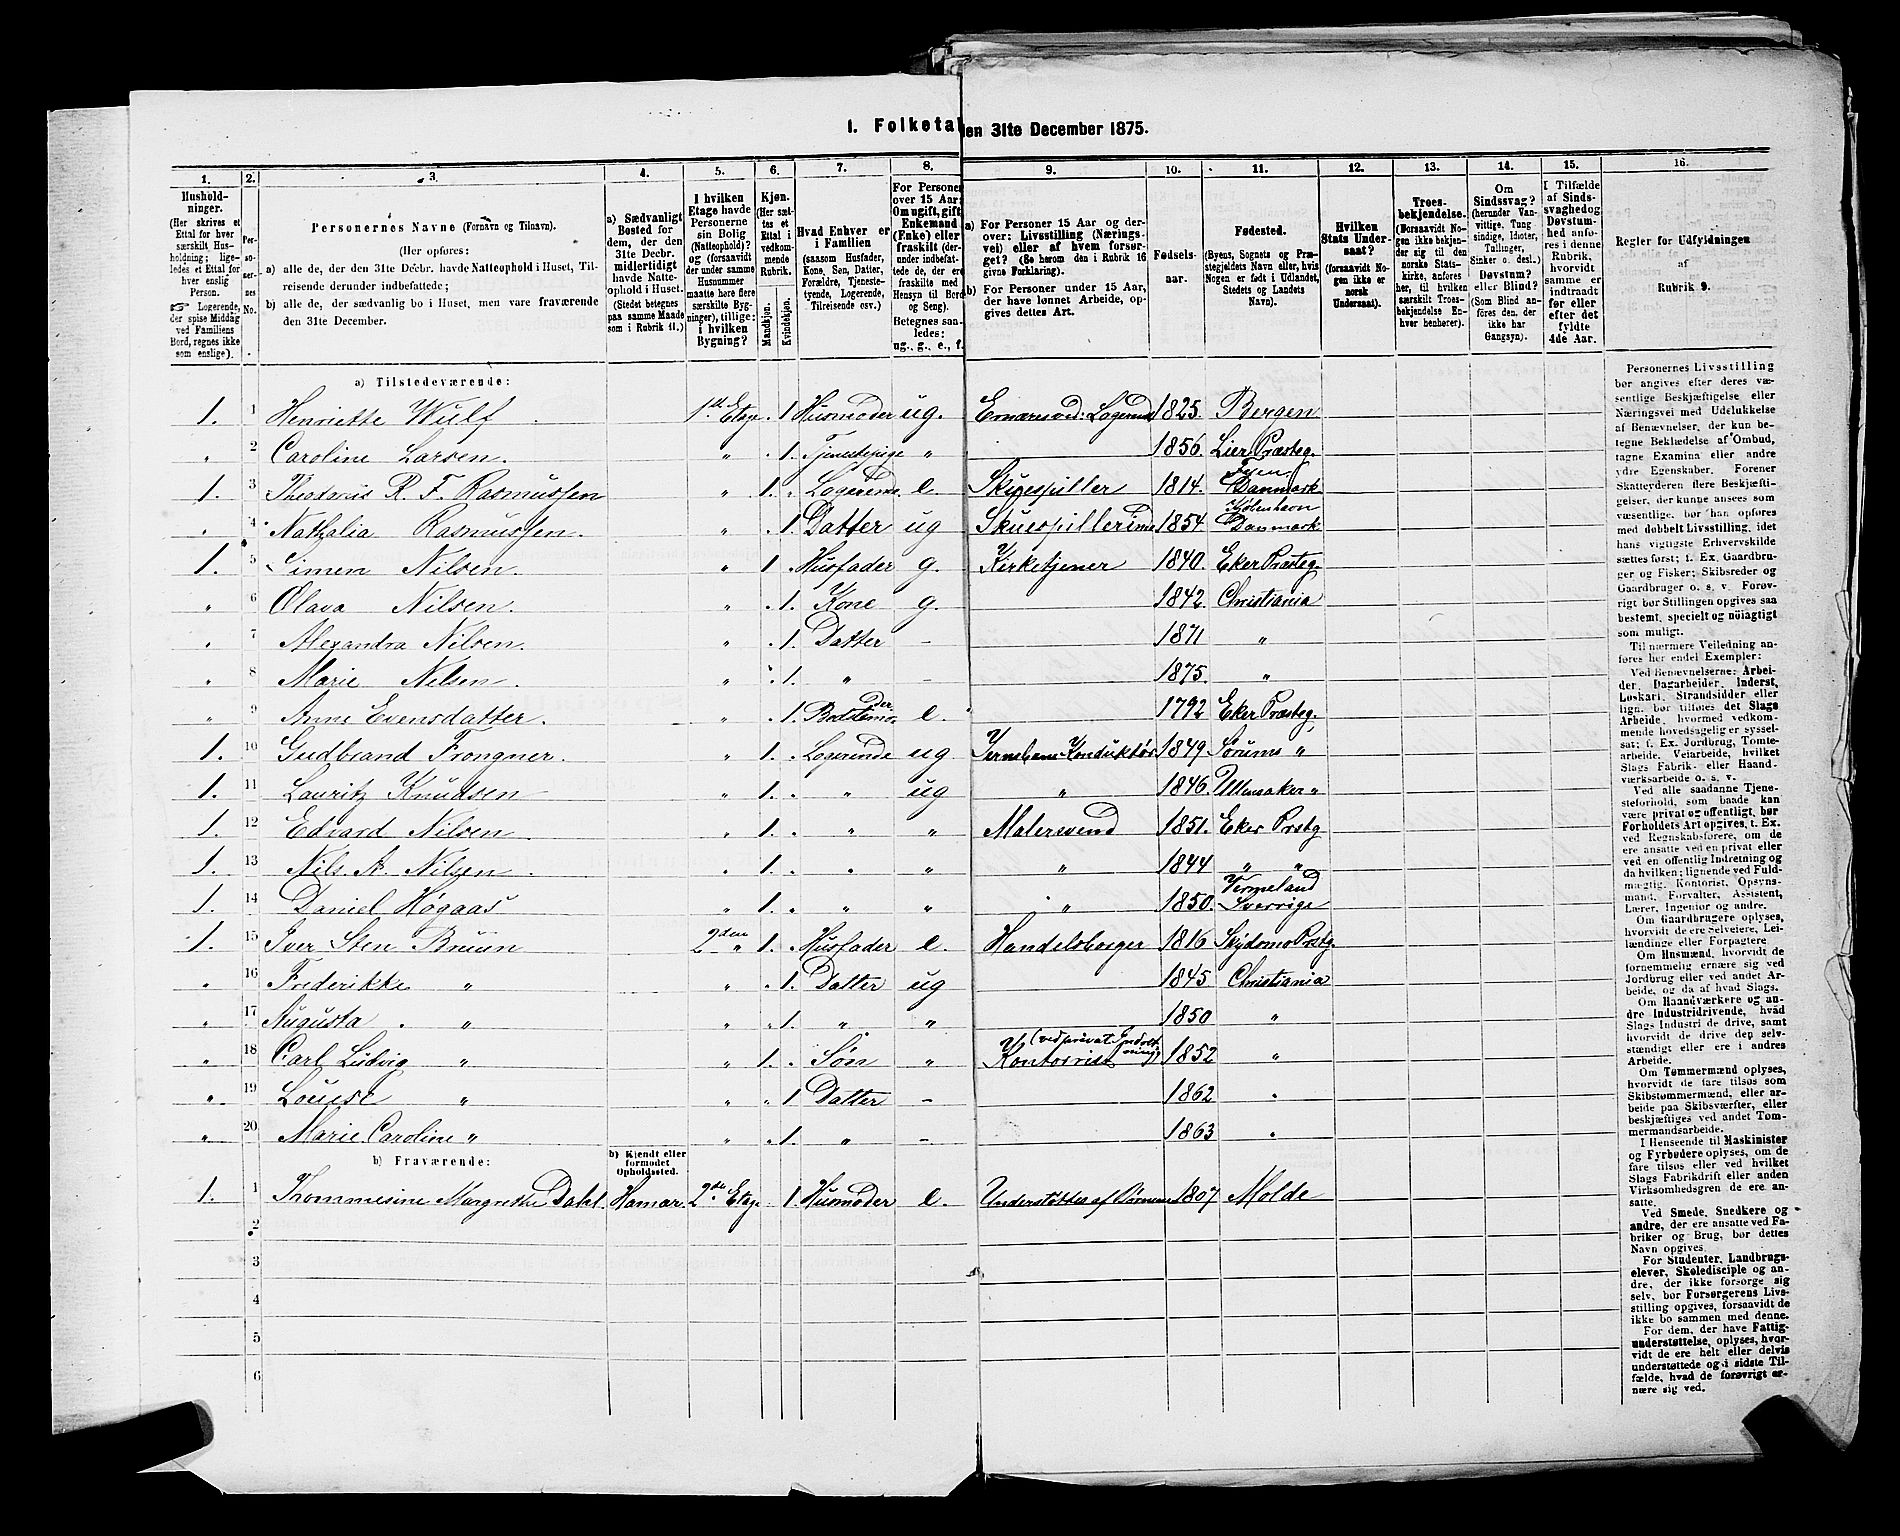 1. Folketal den 31te December 1875.
1. 2. 3. 4. 5. 6. 7. 8. 9. 10. 11. 12. 13. 14. 15. 16.
Hushold-
ninger.
(Her skrives et
Ettal for hver
særskilt Hus-
holdning; lige-
ledes et Ettal for
hver enslig
Person.
Logerende,
der spise Middag
ved Familiens
Bord, regnes ikke
som enslige).
Personernes No.
Personernes Navne (Fornavn og Tilnavn).
(Her opføres:
a) alle de, der den 31te Decbr. havde Natteophold i Huset, Til-
reisende derunder indbefattede;
b) alle de, der sædvanlig bo i Huset, men vare fraværende
den 31te December.
a) Sædvanligt
Bosted for
dem, der den
31te Decbr.
midlertidigt
havde Natte-
ophold i Huset.
(Stedet betegnes
paa samme Maade
som i Rubrik 11.)
I hvilken
Etage havde
Personerne
sin Bolig
(Natteophold)?
og (forsaavidt
der under samme
Husnummer
maatte høre flere
særskilte Byg-
ninger), tillige:
i hvilken
Bygning?
Kjøn.
(Her sæt-
tes et
Ettal i
vedkom-
mende
Rubrik.
Mandkjøn.
Kvindekjøn.
Hvad Enhver er
i Familien
(saasom Husfader,
Kone, Søn, Datter,
Forældre, Tjeneste-
tyende, Logerende,
Tilreisende osv.)
For Personer
over 15 Aar:
Om ugift, gift,
Enkemand
(Enke) eller
fraskilt (der-
under indbefat-
tede de, der ere
fraskilte med
Hensyn til Bord
og Seng).
Betegnes saa-
ledes:
ug., g., e., f.
a) For Personer 15 Aar og der-
over: Livsstilling (Nærings-
vei) eller af hvem forsør-
get? (Se herom den i Rubrik 16
givne Forklaring).
b) For Personer under 15 Aar,
der have lønnet Arbeide, op-
gives dettes Art.
Fødsels-
aar.
Fødested.
(Byens, Sognets og Præ-
stegjeldets Navn eller, hvis
Nogen er født i Udlandet,
Stedets og Landets
Navn).
Hvilken
Stats Under-
saat?
(forsaavidt No-
gen ikke er
norsk
Undersaat).
Troes-
bekjendelse.
(Forsaavidt No-
gen ikke bekjen-
der sig til den
norske Stats-
kirke, anføres
her, til hvilken
særskilt Troes-
bekjendelse En-
hver henhører).
Om
Sindssvag?
(herunder Van-
vittige, Tung
sindige, Idioter,
Tullinger,
Sinker o. desl.)
Døvstum?
eller Blind?
(Som Blind an-
føres den, der
ikke har
Gangsyn).
I Tilfælde
af Sinds-
svaghed og
Døvstum-
hed anfø-
res i denne
Rubrik,
hvorvidt
samme er
indtraadt
før eller
efter det
fyldte
4de Aar.
Regler for Udfyldningen
af
Rubrik 9.
a) Tilstedeværende:
1. 1 Henriette Wulf 1ste Etage 1 Husmoder ug. Ernæres ved Logerende 1825. Bergen
" 2 Caroline Larsen. " 1. Tjenestepige " 1856. Lier Præsteg.
1. 3 Theodorus R. F. Rasmussen " 1. Logerende. e. Skuespiller 1814. Fyen Danmark
" 4 Nathalia Rasmussen. " 1 Datter ug Skuespillerinde 1854. Kjøbenhavn Danmark
1. 5 Simen Nilsen. " 1 Husfader g. Kirketjener 1840. Eker Præsteg.
" 6 Olava Nilsen. " 1. Kone g. 1842. Christiania
" 7 Alexandra Nilsen. " 1. Datter - 1871 "
" 8 Marie Nilsen. " 1. " 1875. "
" 9 Anne Evensdatter. " 1. Bedstemoder e. 1792 Eker Præsteg.
1. 10 Gudbrand Frongner. " 1. Logerende ug Jernbane Konduktør 1849 Sørums "
1. 11 Lauritz Knudsen " 1. " ug " 1846. Ullensaker "
1. 12 Edvard Nilsen " 1. " " Malersvend 1851. Eker Prstg
1. 13 Nils A. Nilsen " 1. " " " 1844 " "
1. 14 Daniel Høgaas " 1. " " " 1850. Vermeland Sverrige
1. 15 Iver Sten Bruun 2den " 1. Husfader e. Handelsborger 1816 Skydsmo Prstg.
" 16 Frederikke " " 1. Datter ug 1845 Christiania
" 17 Augusta " " 1. " " 1850 "
" 18 Carl Ludvig " " 1. Søn " Kontorist (ved privat Indretning) 1852 "
" 19 Louise " " 1 Datter - 1862 "
" 20. Marie Caroline " " 1. " - 1863 "
b) Fraværende:
b) Kjendt eller
formodet
Opholdssted.
1. 1 Thommesine Margrethe Dahl. Hamar. 2den Etage 1. Husmoder e. Understøttes af Børnene 1807 Molde
2
3
4
5
6
Personernes Livsstilling
bør angives efter deres væ-
sentlige Beskjæftigelse eller
Næringsvei med Udelukkelse
af Benævnelser, der kun be-
tegne Beklædelse af Ombud,
tagne Examina eller andre
ydre Egenskaber. Forener
Skatteyderen flere Beskjæfti-
gelser, der kunne ansees som
væsentlige, bør han opføres
med dobbelt Livsstilling, idet
hans vigtigste Erhvervskilde
sættes først; f. Ex. Gaardbru-
ger og Fisker; Skibsreder og
Gaardbruger o. s. v. Forøv-
rigt bør Stillingen opgives saa
bestemt, specielt og nöiagtigt
som muligt.
Til nærmere Veiledning an-
føres her endel Exempler:
Ved Benævnelserne: Arbei-
der, Dagarbeider, Inderst,
Løskari, Strandsidder eller
lign. bør tilføies det Slags
Arbeide, hvormed vedkom-
mende hovedsagelig er syssel-
sat; f. Ex. Jordbrug, Tomte-
arbeide, Veiarbeide, hvilket
Slags Fabrik- eller Haand-
værksarbeide o. s. v.
Ved alle saadanne Tjene-
steforhold, som baade kan
være privat og offentligt, bør
Forholdets Art opgives, f. Ex.
ved Regnskabsførere, om de
ere ansatte ved en privat eller
ved en offentlig Indretning og
da hvilken; lignende ved Fuld-
mægtig, Kontorist, Opsyns-
mand, Forvalter, Assistent,
Lærer, Ingeniør og andre.
Om Gaardbrugere oplyses,
hvorvidt de ere Selveiere, Lei-
lændinge eller Forpagtere
Om Husmænd, hvorvidt de
fornemmelig ernære sig ved
Jordbrug eller ved andet Ar-
beide, og da af hvad Slags.
Om Haandværkere og an-
dre Industridrivende, hvad
Slags Industri de drive, samt
hvorvidt de drive den selv-
stændigt eller ere i andres
Arbeide.
Om Tømmermænd oplyses,
hvorvidt de fare tilsøs som
Skibstømmermænd, eller ar-
beide paa Skibsværfter, eller
beskjæftiges ved andet Tøm-
mermandsarbeide.
I Henseende til Maskinister
og Fyrbødere oplyses, om de
fare tilsøs eller ved hvilket
Slags Fabrikdrift eller anden
Virksomhedsgren de ere an-
satte.
Ved Smede, Snedkere og
andre, der ere ansatte ved Fa-
briker og Brug, bør dettes
Navn opgives.
For Studenter, Landbrugs-
elever, Skoledisciple og an-
dre, der ikke forsørge sig
selv, bør Forsørgerens Livs-
stilling opgives, forsaavidt de
ikke bo sammen med denne.
For dem, der have Fattig-
understøttelse, oplyses, hvor-
vidt de ere helt eller delvis
understøttede og i sidste Til-
fælde, hvad de forøvrigt er-
nære sig ved.